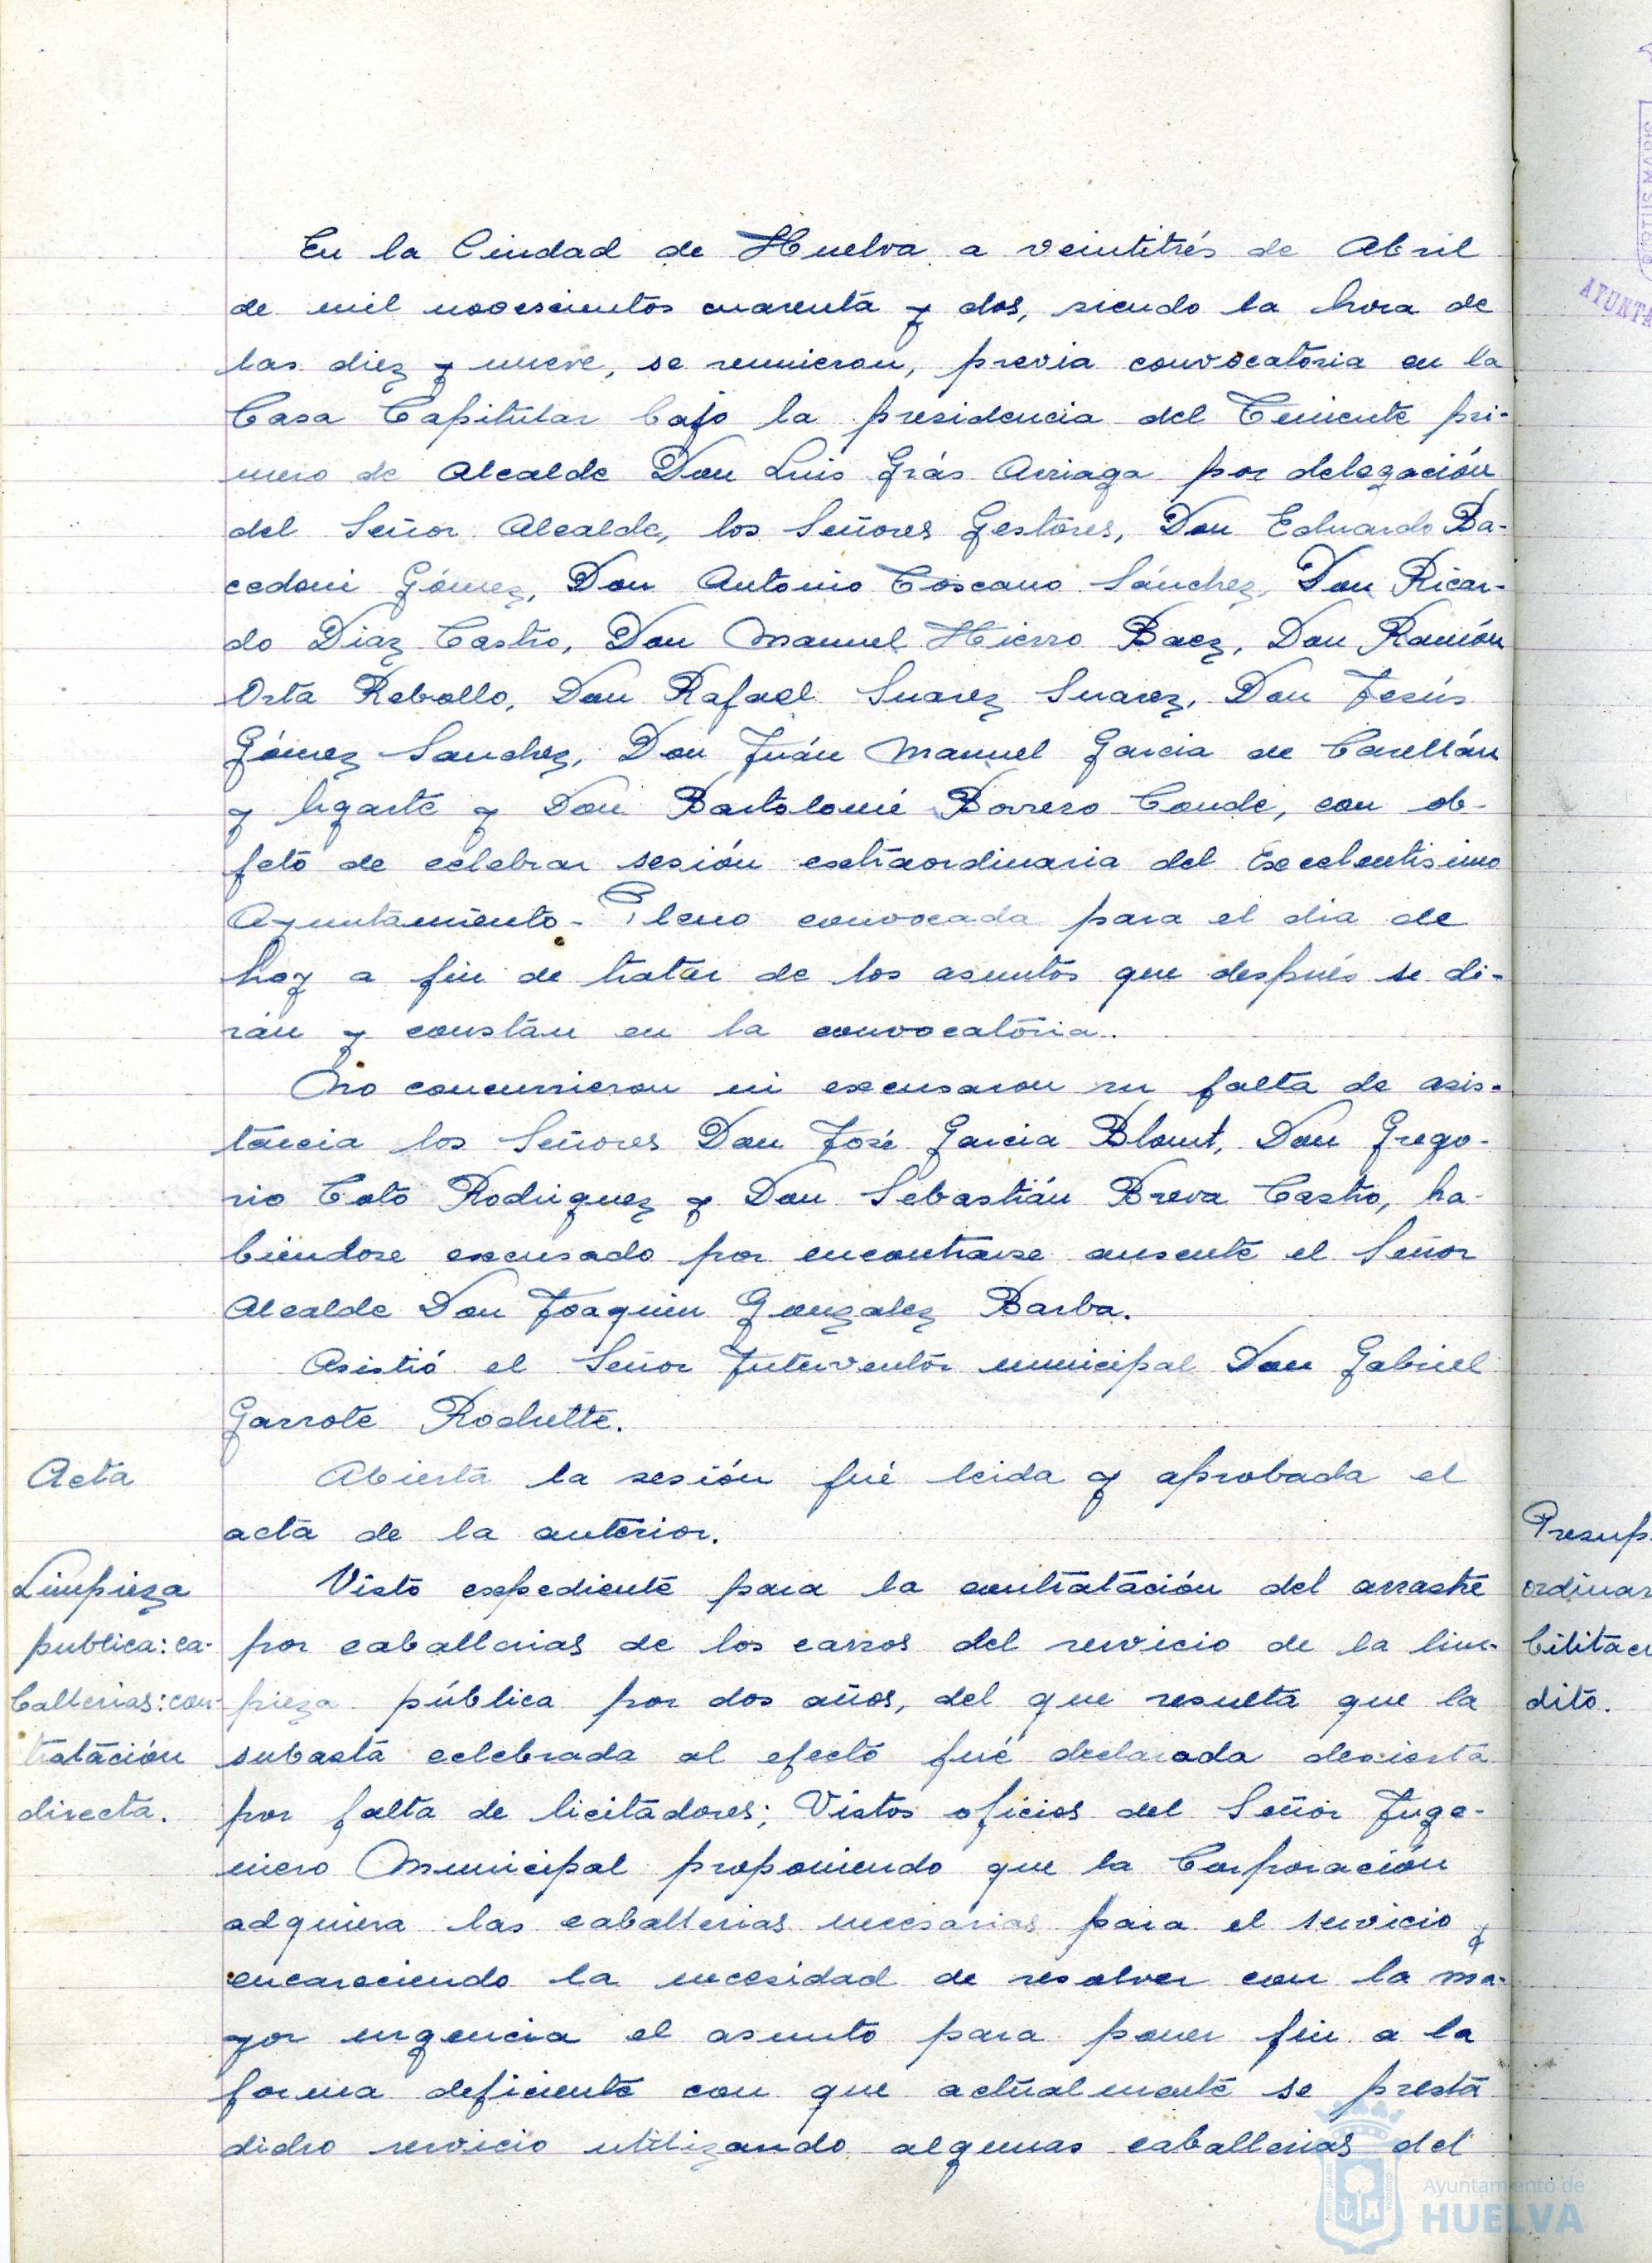 En la Ciudad de Huelva a veintitrés de Abril
de mil novescientos cuarenta y dos, siendo la hora de
las diez y nueve, se reunieron, previa convocatoria en la
Casa Capitular bajo la presidencia del Teniente pri-
mero de Alcalde Don Luis Grás Arriaga por delegación
del Señor Alcalde, los Señores Gestores, Don Eduardo Ba-
cedoni Gómez, Don Antonio Toscano Sánchez, Don Ricar-
do Diaz Castro, Don Manuel Hierro Baez, Don Ramón
Orta Rebollo, Don Rafael Suarez Suarez, Don Jesús
Gómez Sanchez, Don Juán Manuel Garcia de Carellán
y Ugarte y Don Bartolomé Borrero Conde, con ob-
jeto de celebrar sesión extraordinaria del Excelentisimo
Ayuntamiento-Pleno convocada para el dia de
hoy a fin de tratar de los asuntos que después se di-
rán y constan en la convocatoria.
No concurrieron ni excusaron su falta de asis-
tencia los Señores Don José Garcia Blount, Don Grego-
rio Coto Rodriguez y Don Sebastián Breva Castro, ha-
biendose excusado por encontrarse ausente el Señor
Alcalde Don Joaquin Gonzalez Barba.
Asistió el Señor Interventor municipal Don Gabriel
Garrote Rochette.
Acta
Abierta la sesión fué leida y aprobada el
acta de la anterior.
Limpieza
publica: ca-
ballerias: con-
tratación
directa.
Visto expediente para la contratación del arrastre
por caballerias de los carros del servicio de la lim-
pieza pública por dos años, del que resulta que la
subasta celebrada al efecto fué declarada desierta
por falta de licitadores; Vistos oficios del Señor Inge-
niero Municipal proponiendo que la Corporación
adquiera las caballerias necesarias para el servicio y
encareciendo la necesidad de resolver con la ma-
yor urgencia el asunto para poner fin a la
forma deficiente con que actualmente se presta
dicho servicio utilizando algunas caballerias del
Presup
ordinar
dito.
Ayuntamiento de
HUELVA